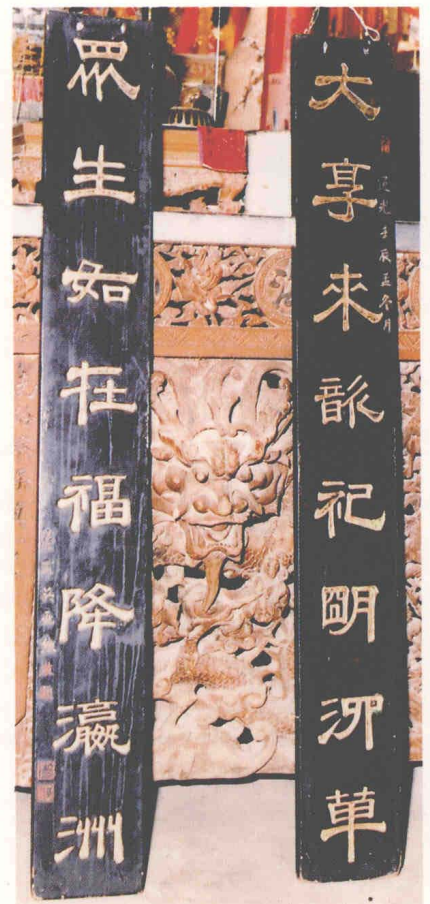 大享來歆祀明泖草
道光壬辰孟冬月
眾生如在福降瀛洲